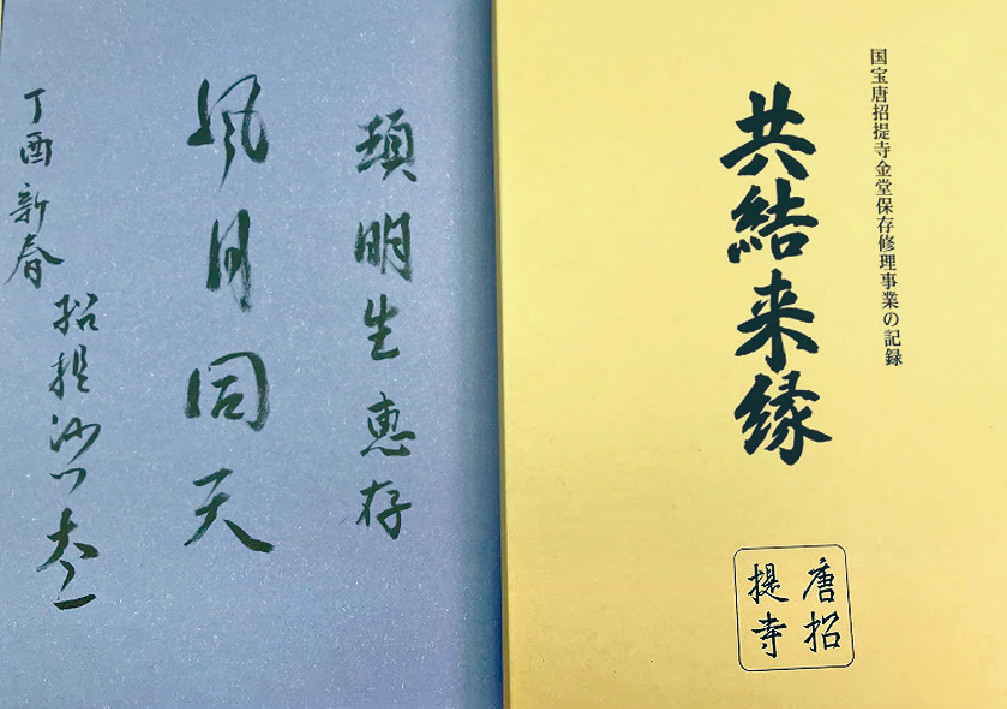 国宝唐招提寺金堂保存修理事業の記録
共結来縁
唐招
提寺
項明生 恵存
風月同天
丁酉新春
招提沙门 太一